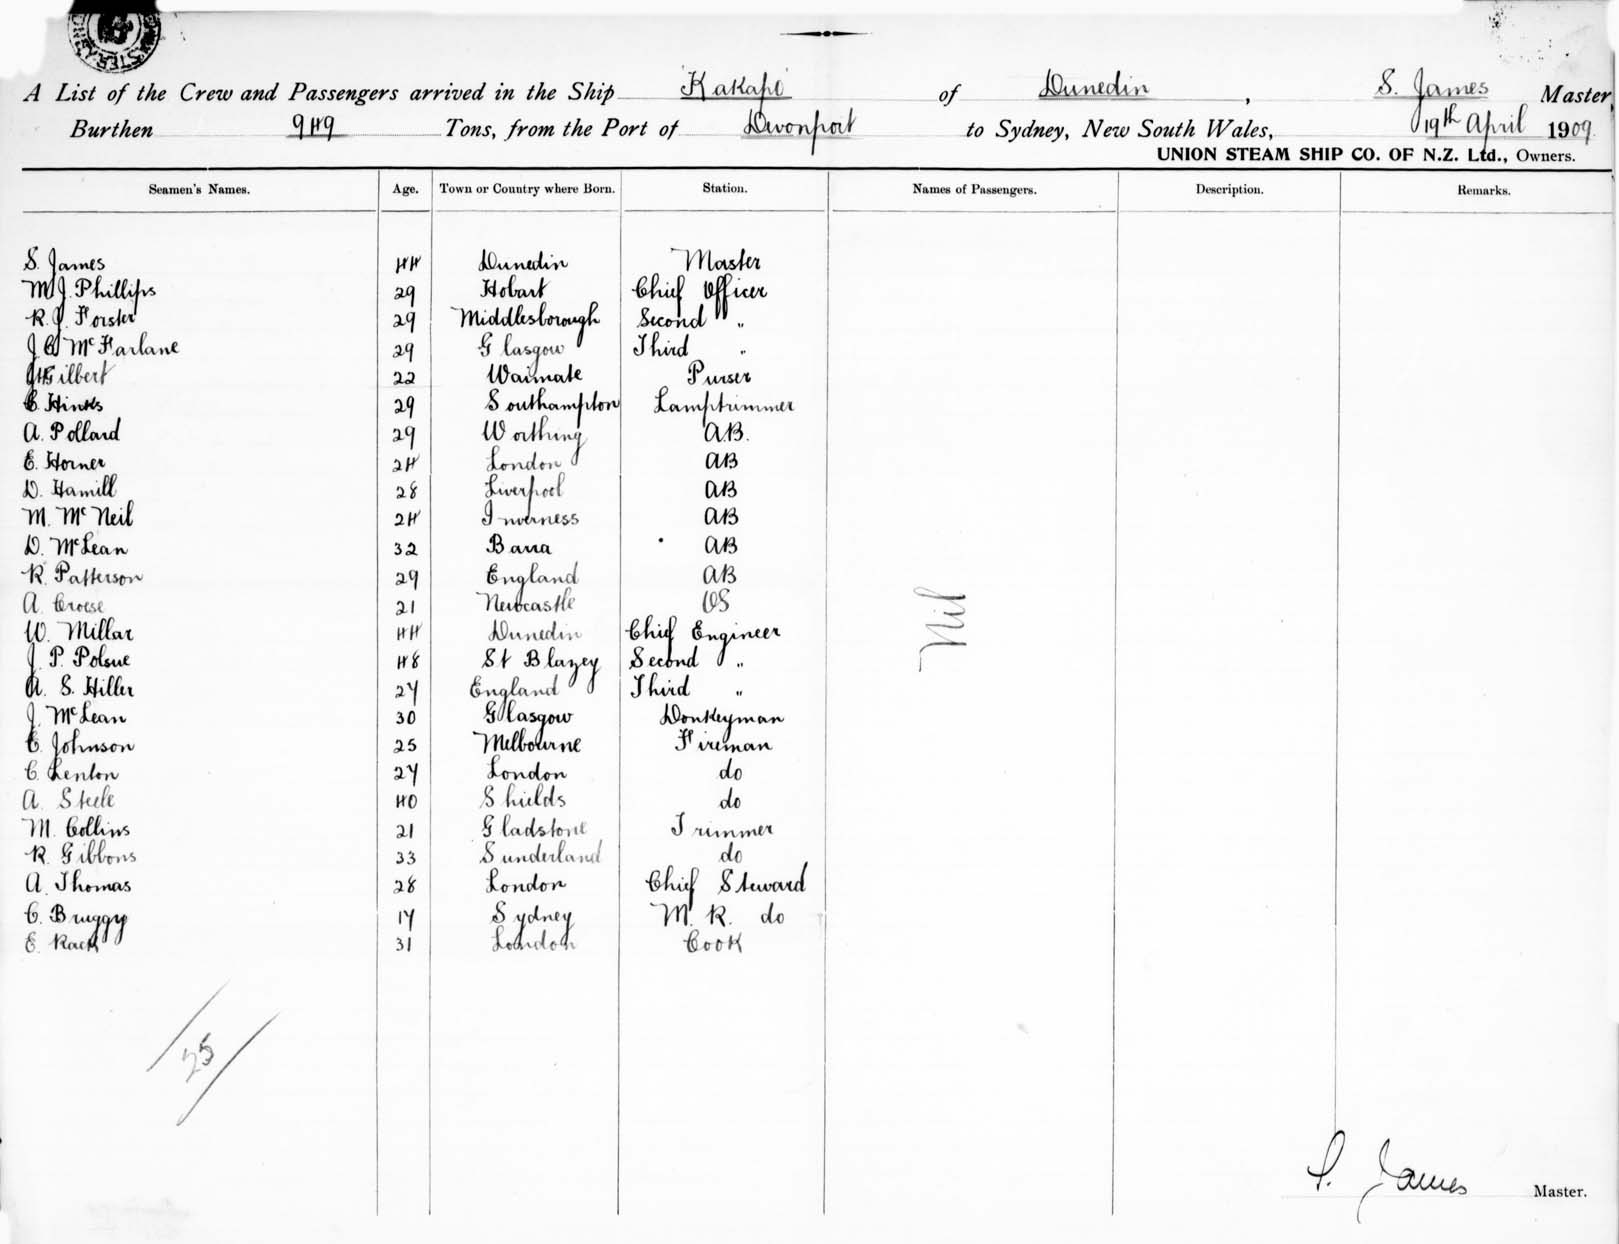 A List of the Crew and Passengers arrived in the Ship "Kakapo" of Dunedin, S. James Master
Burthen 949 Tons, from the Port of Devonport to Sydney, New South Wales, 19th April 1909
UNION STEAM SHIP CO. OF N.Z. Ltd., Owners.
Seamen's Names. Age. Town or Country where Born. Station. Names of Passengers. Description. Remarks.
S. James 44 Dunedin Master
M J. Phillips 29 Hobart Chief Officer
R. J. Forster 29 Middlesborough Second "
J. C. McFarlane 29 Glasgow Third "
Gilbert 22 Waimate Purser
C. Hinks 29 Southampton Lamptrimmer
A. Pollard 29 Worthing AB.
E. Horner 24 London AB
D. Hamill 28 Liverpool AB
M. McNeil 24 Inverness AB
D. McLean 32 Barra AB
R. Patterson 29 England AB
A. Croese 21 Newcastle OS
W. Millar 44 Dunedin Chief Engineer
J. P. Polsue 48 St Blazey Second "
A. S. Hiller 27 England Third "
J. McLean 30 Glasgow Donkeyman
C. Johnson 25 Melbourne Fireman
C. Lenton 27 London do
A. Steele 40 Shields do
M. Collins 21 Gladstone Trimmer
R. Gibbons 33 Sunderland do
A. Thomas 28 London Chief Steward
C. Bruggy 17 Sydney M. R. do
E. Rack 31 London Cook
Nil
25
S. James Master.